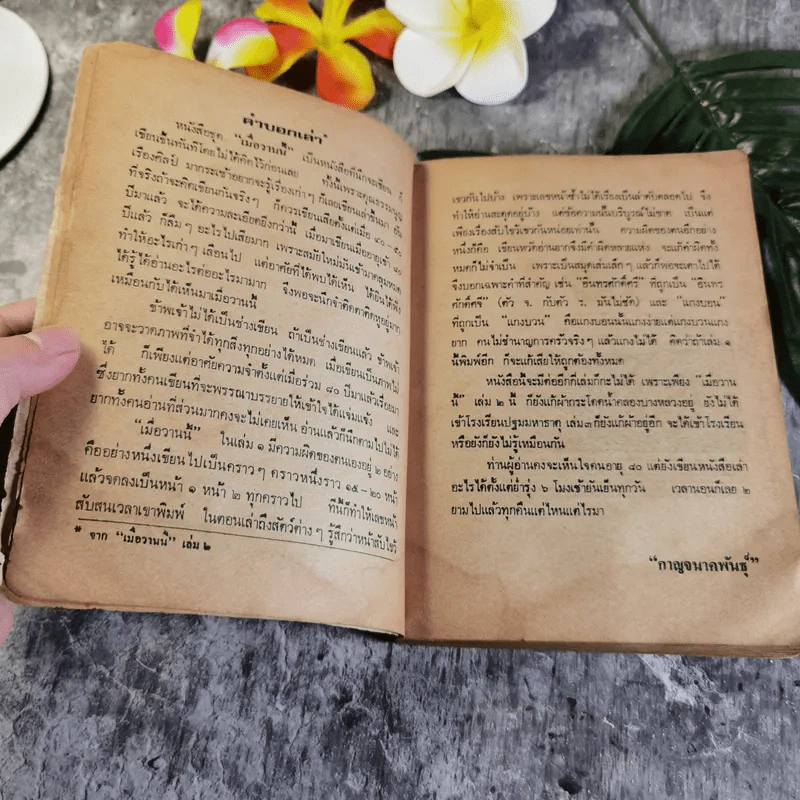 คำบอกเล่า*
หนังสือชุด "เมื่อวานนี้" เป็นหนังสือที่นึกจะเขียน ก็
เขียนขึ้นทันทีโดยไม่ได้คิดไว้ก่อนเลย ทั้งนี้เพราะคุณธรรมนูญ
เรืองศิลป์ มากระเซ้าอยากจะรู้เรื่องเก่าๆ ก็เลยเขียนส่งขึ้นมา อัน
ที่จริงถ้าจะคิดเขียนกันจริงๆ ก็ควรเขียนเสียตั้งแต่เมื่อ ๔๐–๕๐
ปีมาแล้ว จะได้ความละเอียดยิ่งกว่านี้ เมื่อมาเขียนเมื่ออายุเข้า ๘๐
ปีแล้ว ก็ลืมๆ อะไรไปเสียมาก เพราะสมัยใหม่มันเข้ามาคลุมหมด
ทำให้อะไรเก่าๆ เลือนไป แต่อาศัยที่ได้พบได้เห็น ได้ยินได้ฟัง
ได้รู้ได้อ่านอะไรต่ออะไรมามาก จึงพอจะนึกจำติดตาติดหูอยู่มาก
เหมือนกับได้เห็นมาเมื่อวานนี้
ข้าพเจ้าไม่ได้เป็นช่างเขียน ถ้าเป็นช่างเขียนแล้ว ข้าพเจ้า
อาจจะวาดภาพที่จำได้ทุกสิ่งทุกอย่างได้หมด เมื่อเขียนเป็นภาพไม่
ได้ ก็เพียงแต่อาศัยความจำตั้งแต่เมื่อร่วม ๘๐ ปีมาแล้วเรื่อยมา
ซึ่งยากทั้งคนเขียนที่จะพรรณนาบรรยายให้เข้าใจได้แจ่มแจ้ง และ
ยากทั้งคนอ่านที่ส่วนมากคงจะไม่เคยเห็น อ่านแล้วก็นึกตามไปไม่ได้
"เมื่อวานนี้" ในเล่ม ๑ มีความผิดของตนเองอยู่ ๒ อย่าง
คืออย่างหนึ่งเขียนไปเป็นคราวๆ คราวหนึ่งราว ๑๕–๒๐ หน้า
แล้วจดลงเป็นหน้า ๑ หน้า ๒ ทุกคราวไป ทีนี้ก็ทำให้เลขหน้า
สับสนเวลาเขาพิมพ์ ในตอนเล่าถึงสัตว์ต่างๆ รู้สึกว่าหน้าสับไขว้
* จาก "เมื่อวานนี้" เล่ม ๒
เขวกันไปบ้าง เพราะเลขหน้าซ้ำไม่ได้เรียงเป็นลำดับตลอดไป จึง
ทำให้อ่านสะดุดอยู่บ้าง แต่ข้อความนั้นบริบูรณ์ไม่ขาด เป็นแต่
เพียงเรื่องสับไขว้เขวกันหน่อยเท่านั้น ความผิดของตนอีกอย่าง
หนึ่งก็คือ เขียนหวัดอ่านยากจึงมีคำผิดหลายแห่ง จะแก้คำผิดทั้ง
หมดก็ไม่จำเป็น เพราะเป็นสมุดเล่นเล็กๆ แล้วก็พอจะเดาไปได้
จึงบอกเฉพาะคำที่สำคัญ เช่น "อินทรศักดิ์ศรี" ที่ถูกเป็น "อินทร
ศักดิ์ศจี" (ตัว จ. กับตัว ร. มันไม่ชัด) และ "แกงบอน"
ที่ถูกเป็น "แกงบวน" คือแกงบอนนั้นแกงง่ายแต่แกงบวนแกง
ยาก คนไม่ชำนาญการครัวจริงๆ แล้วแกงไม่ได้ คิดว่าถ้าเล่ม ๑
นี้พิมพ์อีก ก็จะแก้เสียให้ถูกต้องทั้งหมด
หนังสือนี้จะมีต่ออีกกี่เล่มก็กะไม่ได้ เพราะเพียง "เมื่อวาน
นี้" เล่ม ๒ นี้ ก็ยังแก้ผ้ากระโดดน้ำคลองบางหลวงอยู่ ยังไม่ได้
เข้าโรงเรียนปฐมมหาธาตุ เล่ม ๓ ก็ยังแก้ผ้าอยู่อีก จะได้เข้าโรงเรียน
หรือยังก็ยังไม่รู้เหมือนกัน
ท่านผู้อ่านคงจะเห็นใจคนอายุ ๘๐ แต่ยังเขียนหนังสือเล่า
อะไรได้ตั้งแต่ย่ำรุ่ง ๖ โมงเช้ายันเย็นทุกวัน เวลานอนก็เลย ๒
ยามไปแล้วทุกคืนแต่ไหนแต่ไรมา
"กาญจนาคพันธุ์"